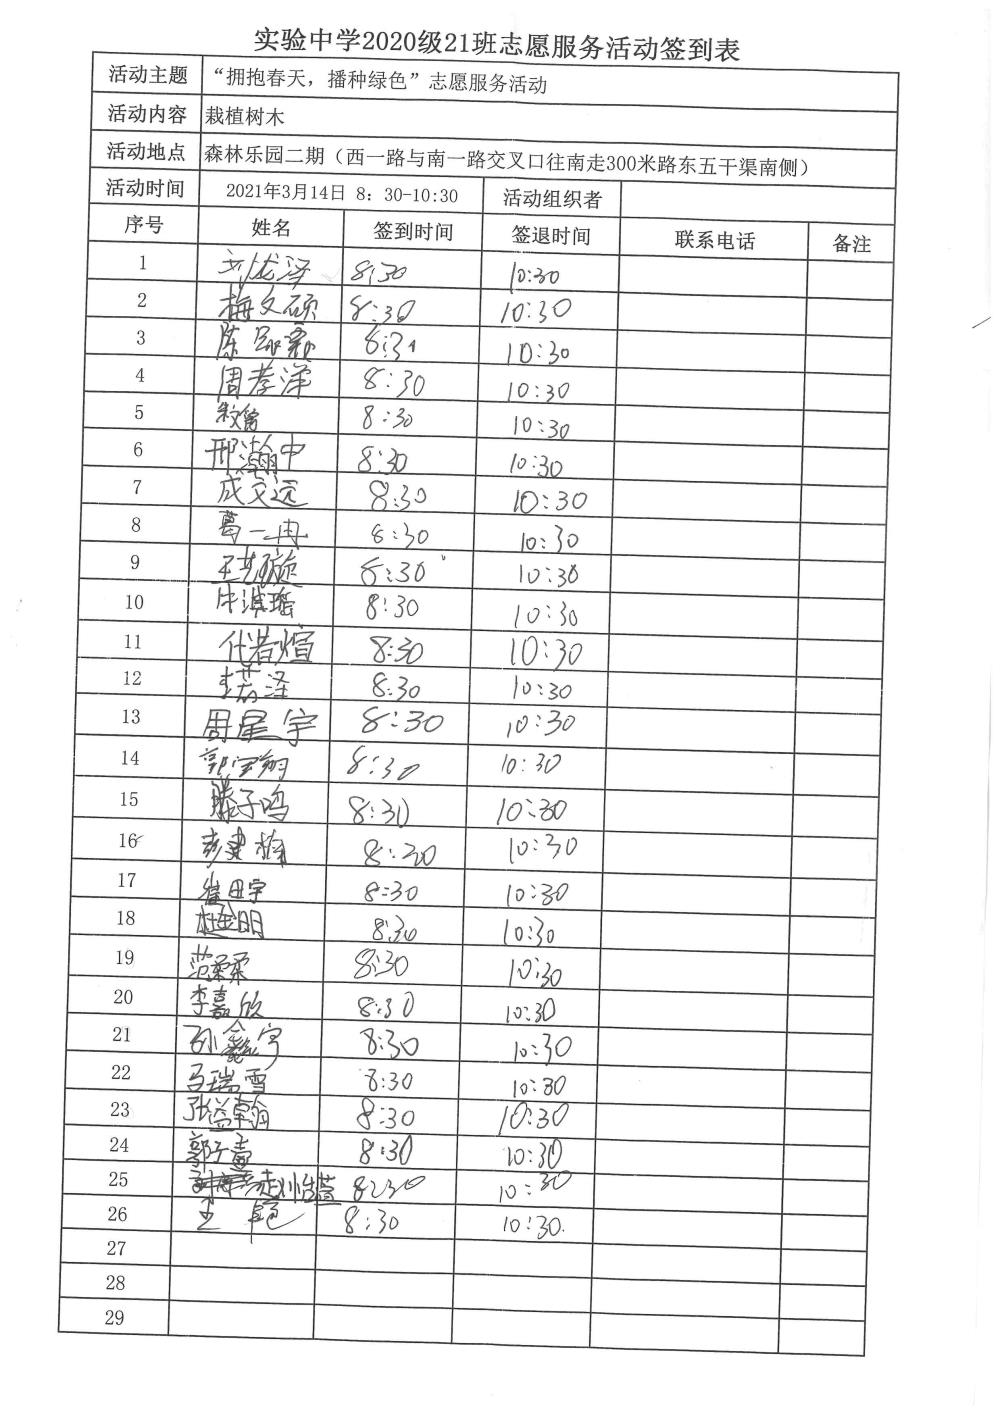 实验中学2020级21班志愿服务活动签到表
活动主题 “拥抱春天，播种绿色”志愿服务活动
活动内容 栽植树木
活动地点 森林乐园二期（西一路与南一路交叉口往南走300米路东五干渠南侧）
活动时间 2021年3月14日 8：30-10:30 活动组织者
序号 姓名 签到时间 签退时间 联系电话 备注
1 刘龙泽 8:30 10:30
2 梅文硕 8:30 10:30
3 陈 8:31 10:30
4 周孝洋 8:30 10:30
5 8:30 10:30
6 邢瀚中 8:30 10:30
7 成文远 8:30 10:30
8 葛一冉 8:30 10:30
9 王艺璇 8:30 10:30
10 8:30 10:30
11 代若煊 8:30 10:30
12 李若泽 8:30 10:30
13 周星宇 8:30 10:30
14 郭宇翔 8:30 10:30
15 滕子鸣 8:30 10:30
16 彭建 8:30 10:30
17 崔田宇 8:30 10:30
18 8:30 10:30
19 范柔柔 8:30 10:30
20 李嘉欣 8:30 10:30
21 孙 宇 8:30 10:30
22 马瑞雪 8:30 10:30
23 张益翰 8:30 10:30
24 郭子萱 8:30 10:30
25 8:30 10:30
26 王艳 8:30 10:30.
27
28
29